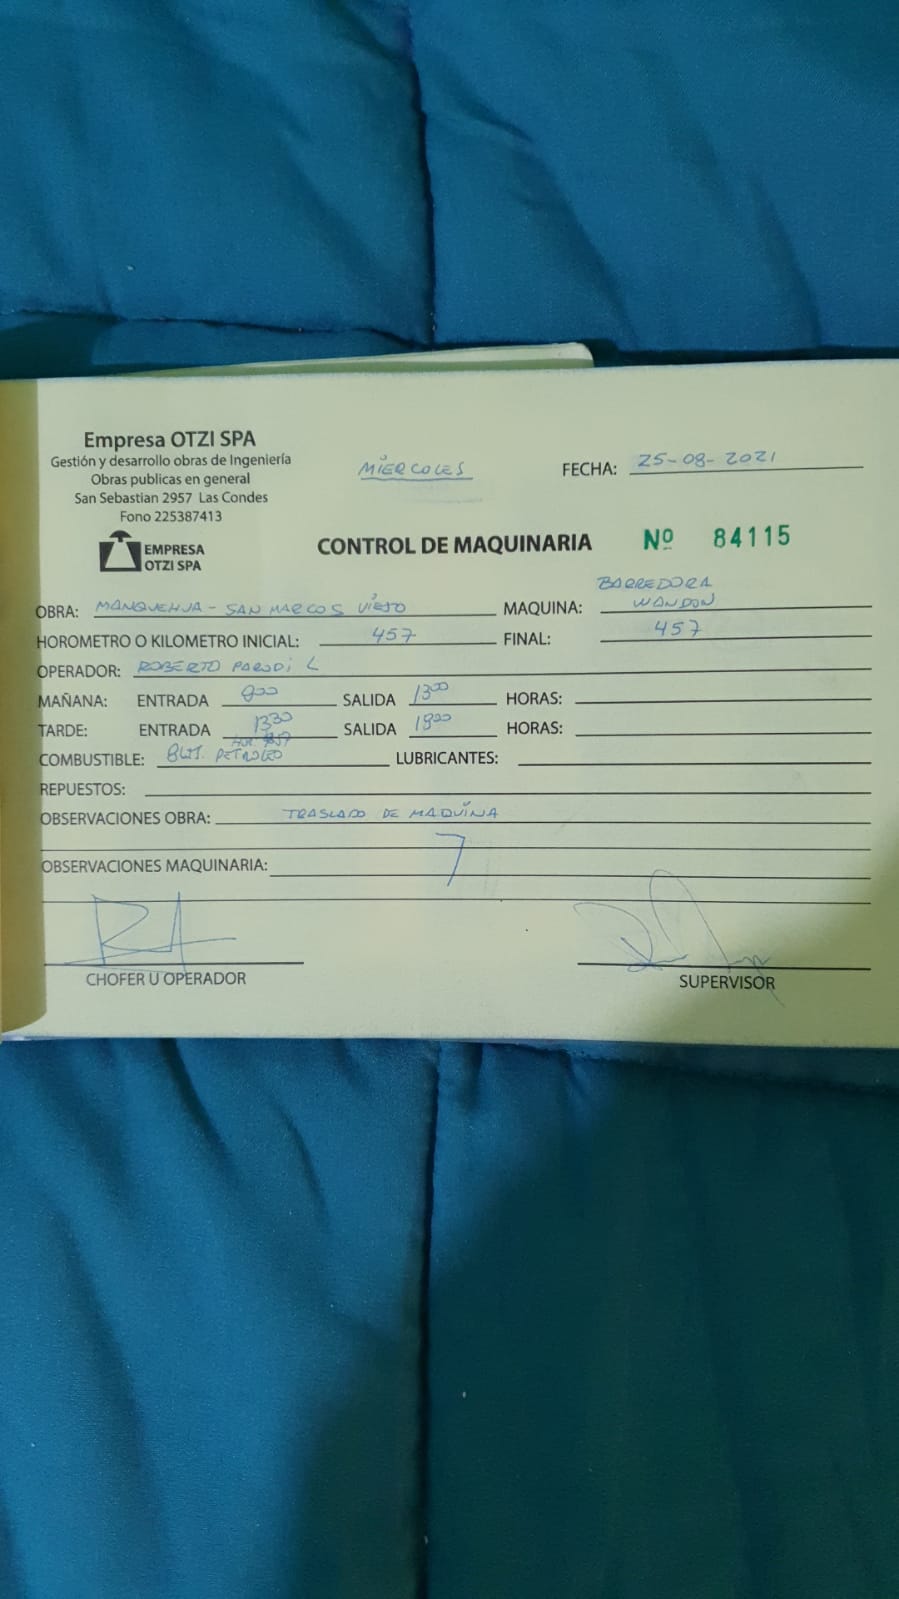 Empresa OTZI SPA
Gestión y desarrollo obras de Ingeniería
Obras publicas en general
San Sebastian 2957 Las Condes
Fono 225387413
EMPRESA
OTZI SPA
MIERCOLES
FECHA: 25-08-2021
CONTROL DE MAQUINARIA Nº 84115
OBRA: MANQUEHUA - SAN MARCOS VIEJO MAQUINA: BARREDORA WANDON
HOROMETRO O KILOMETRO INICIAL: 457 FINAL: 457
OPERADOR: ROBERTO PARODI L
MAÑANA: ENTRADA 800 SALIDA 1300 HORAS:
TARDE: ENTRADA 1330 SALIDA 1800 HORAS:
COMBUSTIBLE: PETROLEO LUBRICANTES:
REPUESTOS:
OBSERVACIONES OBRA: TRASLADO DE MAQUINA
OBSERVACIONES MAQUINARIA:
CHOFER U OPERADOR
SUPERVISOR